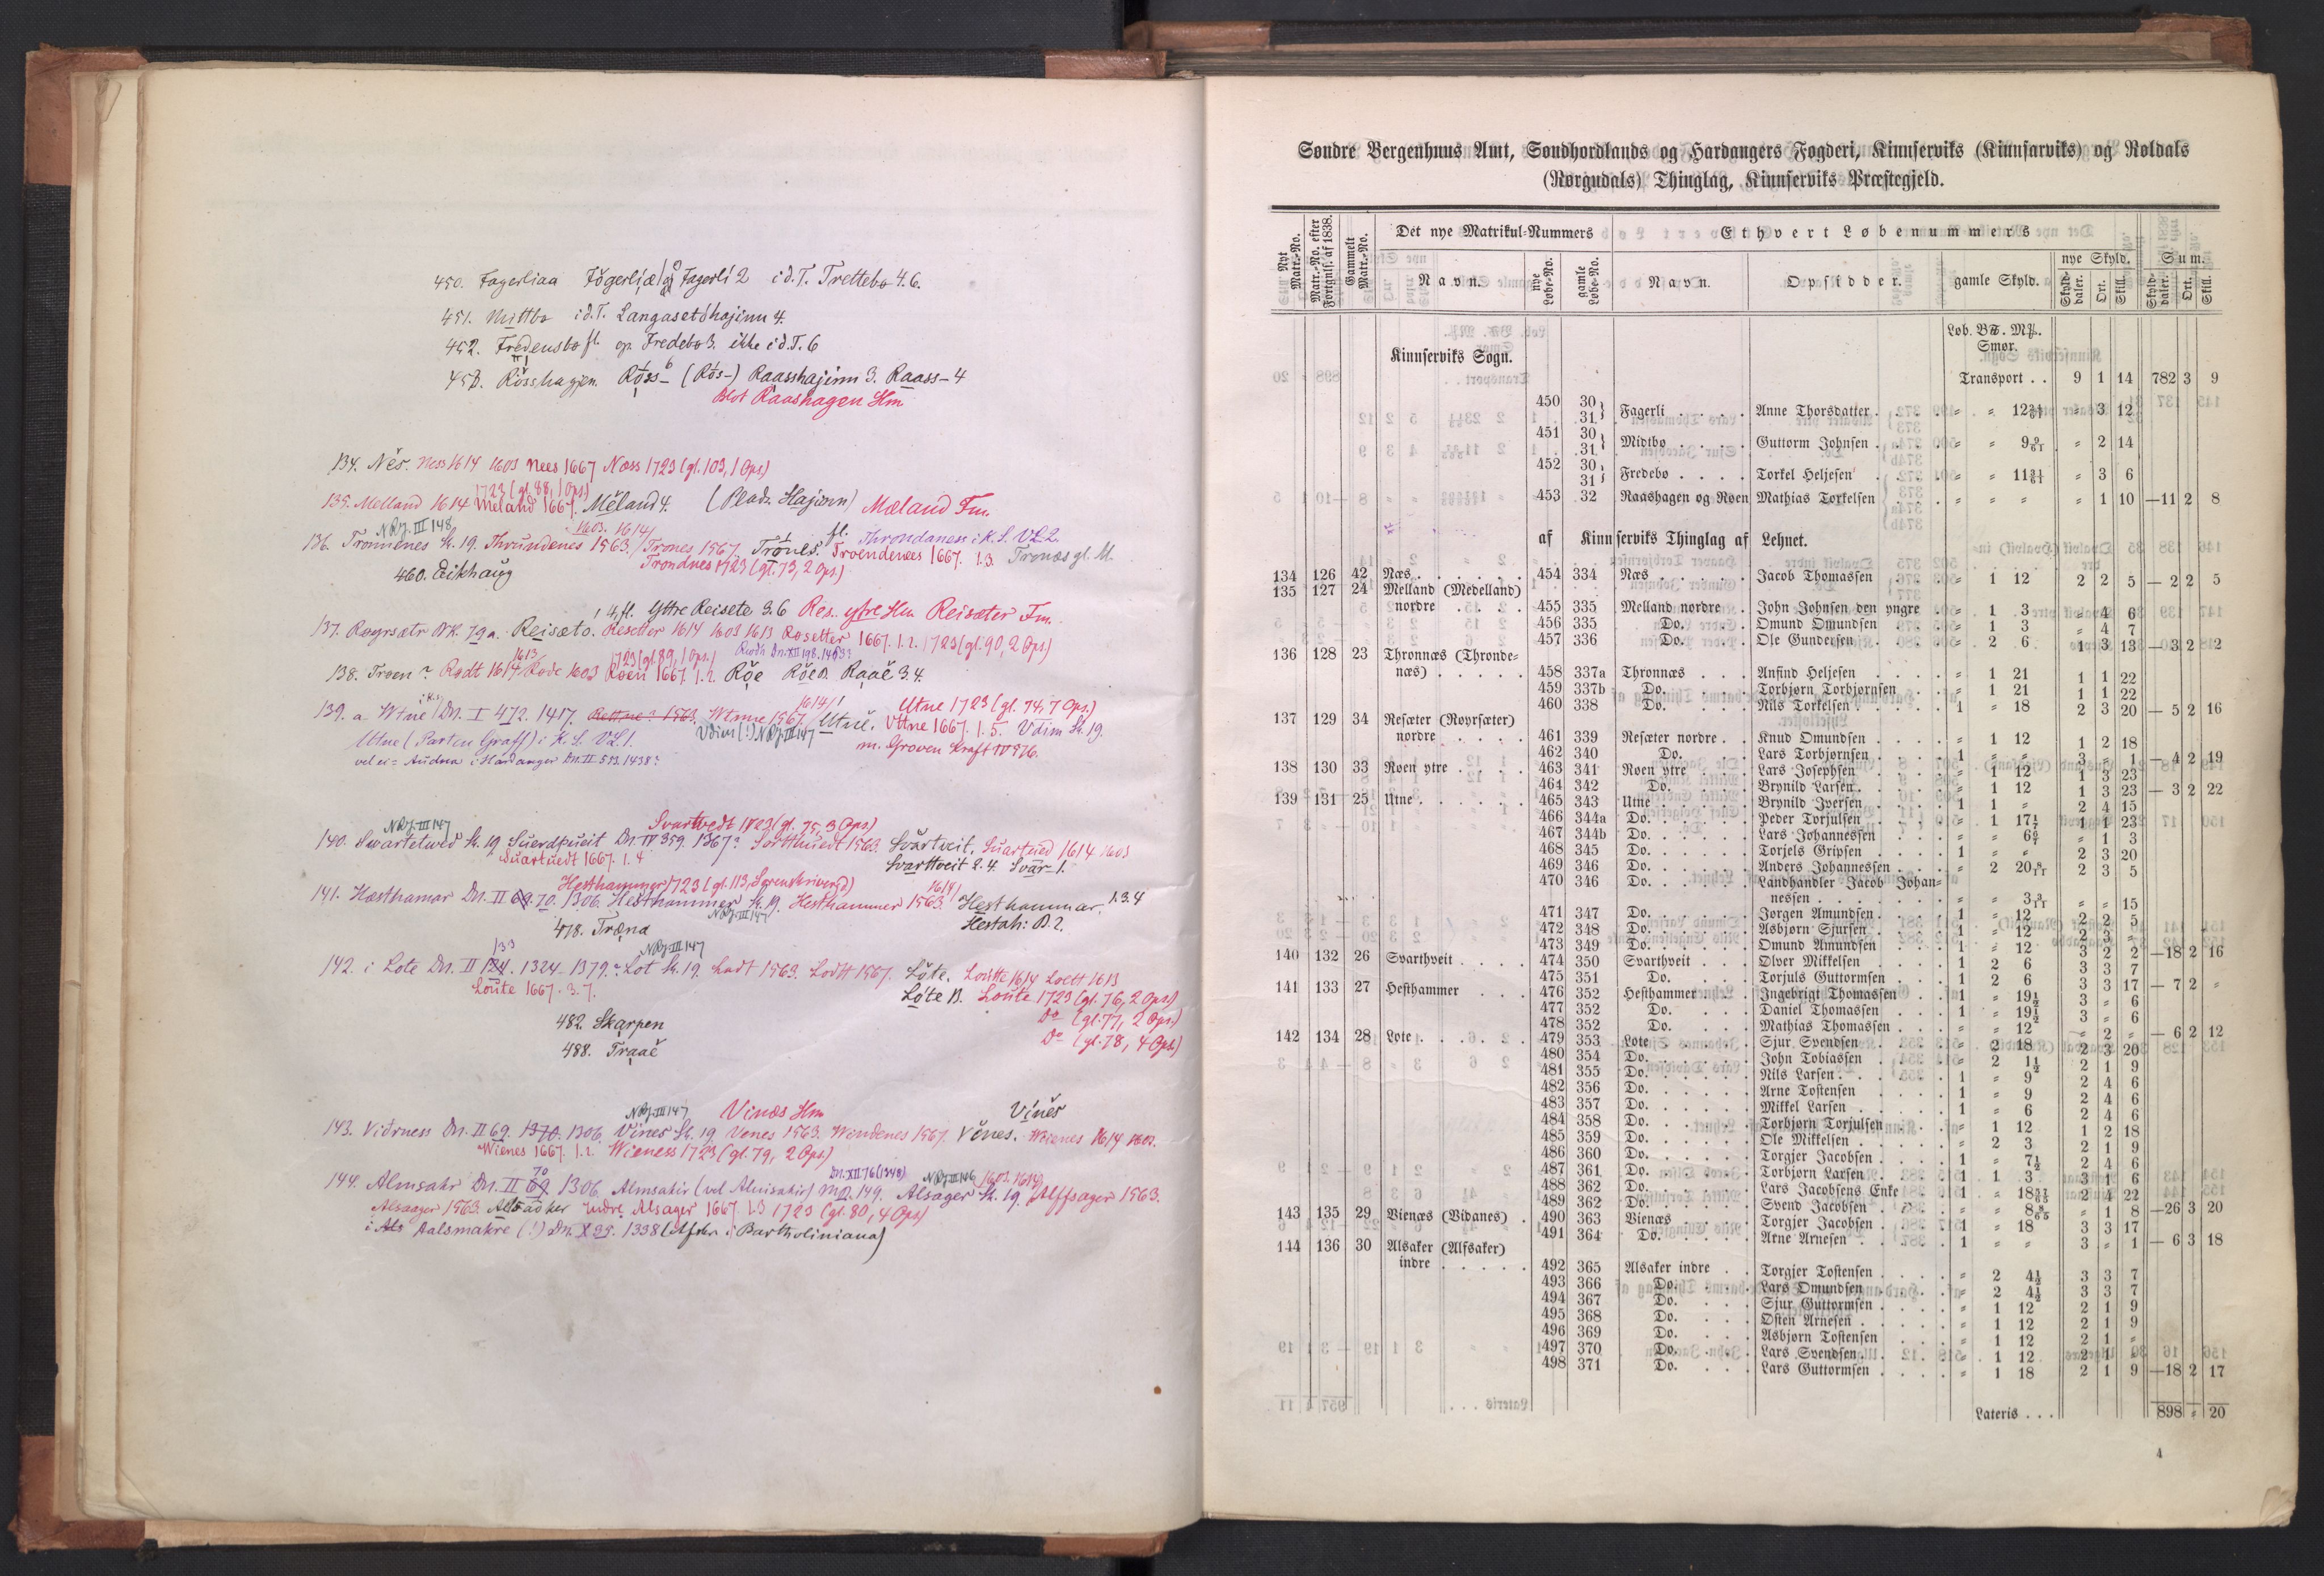 450. Fagerliaa Fögerliæ/ og Fagerli 2 i d.T. Trettebo 4.6.
451. Mittbø i d.T. Langasetshajinn 4.
452. Fredensbo fl. op. Fredebo 3. ikke i d.T. 6
453. Rösshagjen. Röss- (Rós-) Raasshajinn 3. Raass-4
Blot Raashagen Hm
134. Nĕs. Ness 1614 1603 Nees 1667 Næss 1723 (gl. 103, 1 Ops)
1723 (gl. 88, 1 Ops)
135. Melland 1614 Meland 1667. Mĕland 4. Mæland Fm.
NRJ. III 148 1603. 1614/
136. Tronnenes St. 19. Thrundenes 1563. / Trones 1567. Trönes. Throndaness i K.S. VL2. Troendenees 1667. 1.3. Tronæs gl. M.
Trondnes 1723 (gl. 73, 2 Ops.)
460. Eikhaug
Yttre Reisete 3.6 Res. ytre Hm Reisæter Fm.
137. Røyrsætr BK. 79a. Reisæto. Resetter 1614 1603 1613 Rosetter 1667. 1.2. 1723 (gl. 90, 2 Ops.)
1613 1723 (gl. 89, 1 Ops.)
138. Troen? Rødt 1614/ Rode 1603 Roen 1667. 1.2. Rŏe Raaĕ 3.4.
1614/ Utne 1723 (gl. 74, 7 Ops.)
139. a Wtne / Dn. I 472. 1417. Wtnne 1567. Utnĕ. Uttne 1667. 1.5. Vdim St. 19.
Vdim (!) NRJ. III 147
Utne (Parten Graff) i K.S. VL1. m. Groven Kraft IV 976.
vel ei = Audna i Hardanger Dn. II 513. 1438?
NRJ. III 147 Svartvedt 1723 (gl. 75, 3 Ops)
140. Swartetwed St. 19 Suerdtueit Dn. IV 359. 1367? Sortthuedt 1563. Svărtveit. Suartued 1614 1603
Suartuedt 1667. 1.4 Svarttveit 2.4. Svar-1.
Hesthammer 1723 (gl. 113, Sorenskrivergd) 1614/
141. Hæsthamar Dn. II 69. 70. 1306. Hesthammer St. 19. Hesthammer 1563. Hesthammar. 1.3.4
NRJ. III 147 Hestah: B. 2.
478. Træna
133 NRJ. III 147
142. i Lote Dn. II 124. 1324. 1379? Lot St. 19. Ladt 1563. Lodtt 1567. Lŏte. Loutte 1614 Loett 1613
Loute 1667. 3.7. Lóte B. Loute 1723 (gl. 76, 2 Ops)
Do (gl. 77, 2 Ops.)
482. Skarpen
Do (gl. 78, 4 Ops)
488. Traaĕ
NRJ. III 147 Vinæs Hm Vínĕs
143. Viðrness Dn. II 69. 1370. 1306. Vines St. 19 Venes 1563. Windenes 1567. Vĕnes. Weienes 1614 1603.
Wienes 1667. 1.2. Wieness 1723 (gl. 79, 2 Ops.)
70 Dn. XII 76 (1348) NRJ. III 146 1603. 1614/
144. Almsakr Dn. II 69 1306. Almsakir (vel Almisakir) 149. Alsager St. 19. Alffsager 1563.
Alsaager 1563. Alsaaker Indre Alsager 1667. 1.3 1723 (gl. 80, 4 Ops)
i Als Aalsmakre (!) Dn. X 35. 1338 (Afskr. i Bartholiniana)
Søndre Bergenhuus Amt, Søndhordlands og Hardangers Fogderi, Kinnserviks (Kinnsarviks) og Røldals
(Rørgudals) Thinglag, Kinnserviks Præstegjeld.
Nyt Matr.-No. Matr.-No. efter Fortgnls. af 1838. Gammelt Matr.-No. Det nye Matrikul-Nummers Ethvert Løbenummers
nye Skyld. Sum.
Navn. nye Løbe-No. gamle Løbe-No. Navn. Opsidder. gamle Skyld. Skyld-daler. Ort. Skill. Skyld-daler. Ort. Skill.
Løb. B℔. M℔.
Smør.
Kinnserviks Sogn.
Transport . . 9 1 14 782 3 9
450 30, 31 Fagerli . . . . Anne Thorsdatter . . . . " " 12 31/61 " 3 12
451 30, 31 Midtbø . . . . Guttorm Johnsen . . . . " " 9 9/61 " 2 14
452 30, 31 Fredebø . . . . Torkel Heljesen . . . . " " 11 21/61 " 3 6
453 32 Raashagen og Røen Mathias Torkelsen . . " " " " 1 10 —11 2 8
af Kinnserviks Thinglag af Lehnet.
134 126 42 Næs . . . . 454 334 Næs . . . . Jacob Thomassen . . " 1 12 2 2 5 — 2 2 5
135 127 24 Melland (Medelland)
nordre . . . 455 335 Melland nordre . John Johnsen den yngre . " 1 3 " 4 6
456 335 Do. . . . Omund Omundsen . . " 1 3 " 4 7
457 336 Do. . . . Ole Gundersen . . . " 2 6 1 3 13 — 3 2 2
136 128 23 Thronnæs (Thronde-
næs) . . . . 458 337a Thronnæs . . . Anfind Heljesen . . . . " 1 21 1 1 22
459 337b Do. . . . Torbjørn Torbjørnsen . . " 1 21 1 1 22
460 338 Do. . . . Nils Torkelsen . . . . 1 " 18 2 3 20 — 5 2 16
137 129 34 Resæter (Røyrsæter)
nordre . . . 461 339 Resæter nordre . . Knud Omundsen . . . . " 1 12 1 2 18
462 340 Do. . . . Lars Torbjørnsen . . . 1 " " 3 " 1 — 4 2 19
138 130 33 Røen ytre . . . 463 341 Røen ytre . . . Lars Josephsen . . . " 1 12 1 3 23
464 342 Do. . . . Brynild Larsen . . . . " 1 12 1 3 23 — 3 2 22
139 131 25 Utne . . . . . 465 343 Utne . . . . . Brynild Iversen . . . . 1 1 " 2 4 15
466 344a Do. . . . . Peder Torjulsen . . . . " 1 17 1/7 1 1 23
467 344b Do. . . . . Lars Johannessen . . . " " 6 6/7 " 1 3
468 345 Do. . . . . Torjels Gripsen . . . . 1 " " 2 3 20
469 346 Do. . . . . Anders Johannessen . . . " 2 20 8/11 2 3 5
470 346 Do. . . . . Landhandler Jacob Johan-
nessen . . . . . . " " 3 3/11 " " 15
471 347 Do. . . . . Jørgen Amundsen . . . . 1 " 12 2 2 5
472 348 Do. . . . . Asbjørn Sjursen . . . . 1 " 12 2 3 "
473 349 Do. . . . . Omund Amundsen . . . 1 " 12 3 2 2 —18 2 16
140 132 26 Svarthveit . . . . 474 350 Svarthveit . . . Olver Mikkelsen . . . . 1 2 6 3 3 7
475 351 Do. . . . Torjuls Guttormsen . . . 1 2 6 3 3 17 — 7 2 "
141 133 27 Hesthammer . . . 476 352 Hesthammer . . . Ingebrigt Thomassen . . 1 " 19 1/2 3 " 6
477 352 Do. . . . Daniel Thomassen . . . 1 " 19 1/2 3 " 6
478 352 Do. . . . Mathias Thomassen . . . " " 12 " 2 " — 6 2 12
142 134 28 Lote . . . . . 479 353 Lote . . . . . Sjur Svendsen . . . . " 2 18 2 3 20
480 354 Do. . . . . John Tobiassen . . . . " 2 1 1/2 2 1 9
481 355 Do. . . . . Nils Larsen . . . . . 1 " 9 2 4 6
482 356 Do. . . . . Arne Tostensen . . . . 1 " 9 2 4 6
483 357 Do. . . . . Mikkel Larsen . . . . 1 " 6 2 4 6
484 358 Do. . . . . Torbjørn Torjulsen . . . " 1 12 1 2 18
485 359 Do. . . . . Ole Mikkelsen . . . . " 2 3 2 1 9
486 360 Do. . . . . Torgjer Jacobsen . . . . 1 " 7 1/2 2 4 6
487 361 Do. . . . . Torbjørn Larsen . . . . 1 1 3 3 1 6
488 362 Do. . . . . Lars Jacobsens Enke . . 1 " 18 51/65 2 4 22
489 362 Do. . . . . Svend Jacobsen . . . . " " 8 8/65 " 1 8 —26 3 20
143 135 29 Vienæs (Vidanes) . 490 363 Vienæs . . . . Torgjer Jacobsen . . . . 1 " 18 3 3 17
491 364 Do. . . . . Arne Arnesen . . . . 1 " " 3 " 1 — 6 3 18
144 136 30 Alsaker (Alfsaker)
indre . . . . . 492 365 Alsaker indre . . Torgjer Tostensen . . . . " 2 4 1/2 3 3 7
493 366 Do. . . . Lars Omundsen . . . . " 2 4 1/2 3 3 7
494 367 Do. . . . Sjur Guttormsen . . . . " 1 12 2 1 9
495 368 Do. . . . Østen Arnesen . . . . " 1 12 2 1 9
496 369 Do. . . . Asbjørn Tostensen . . . " 1 12 2 1 "
497 370 Do. . . . Lars Svendsen . . . . " 1 12 2 1 "
498 371 Do. . . . Lars Guttormsen . . . . " 1 18 2 1 9 —18 2 17
Lateris . . . 898 " 20
4